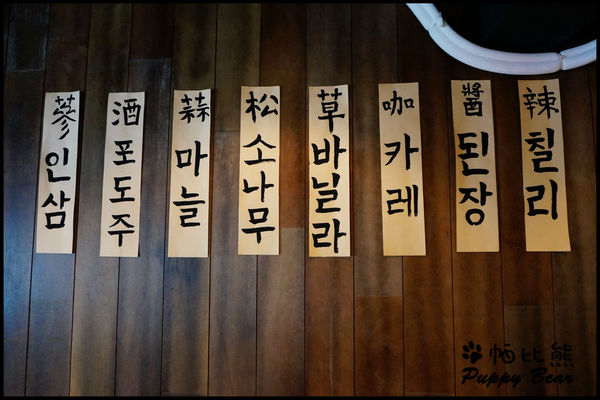 蔘인삼
酒포도주
蒜마늘
松소나무
草바닐라
咖카레
醬된장
辣칠리
帕比熊
Puppy Bear